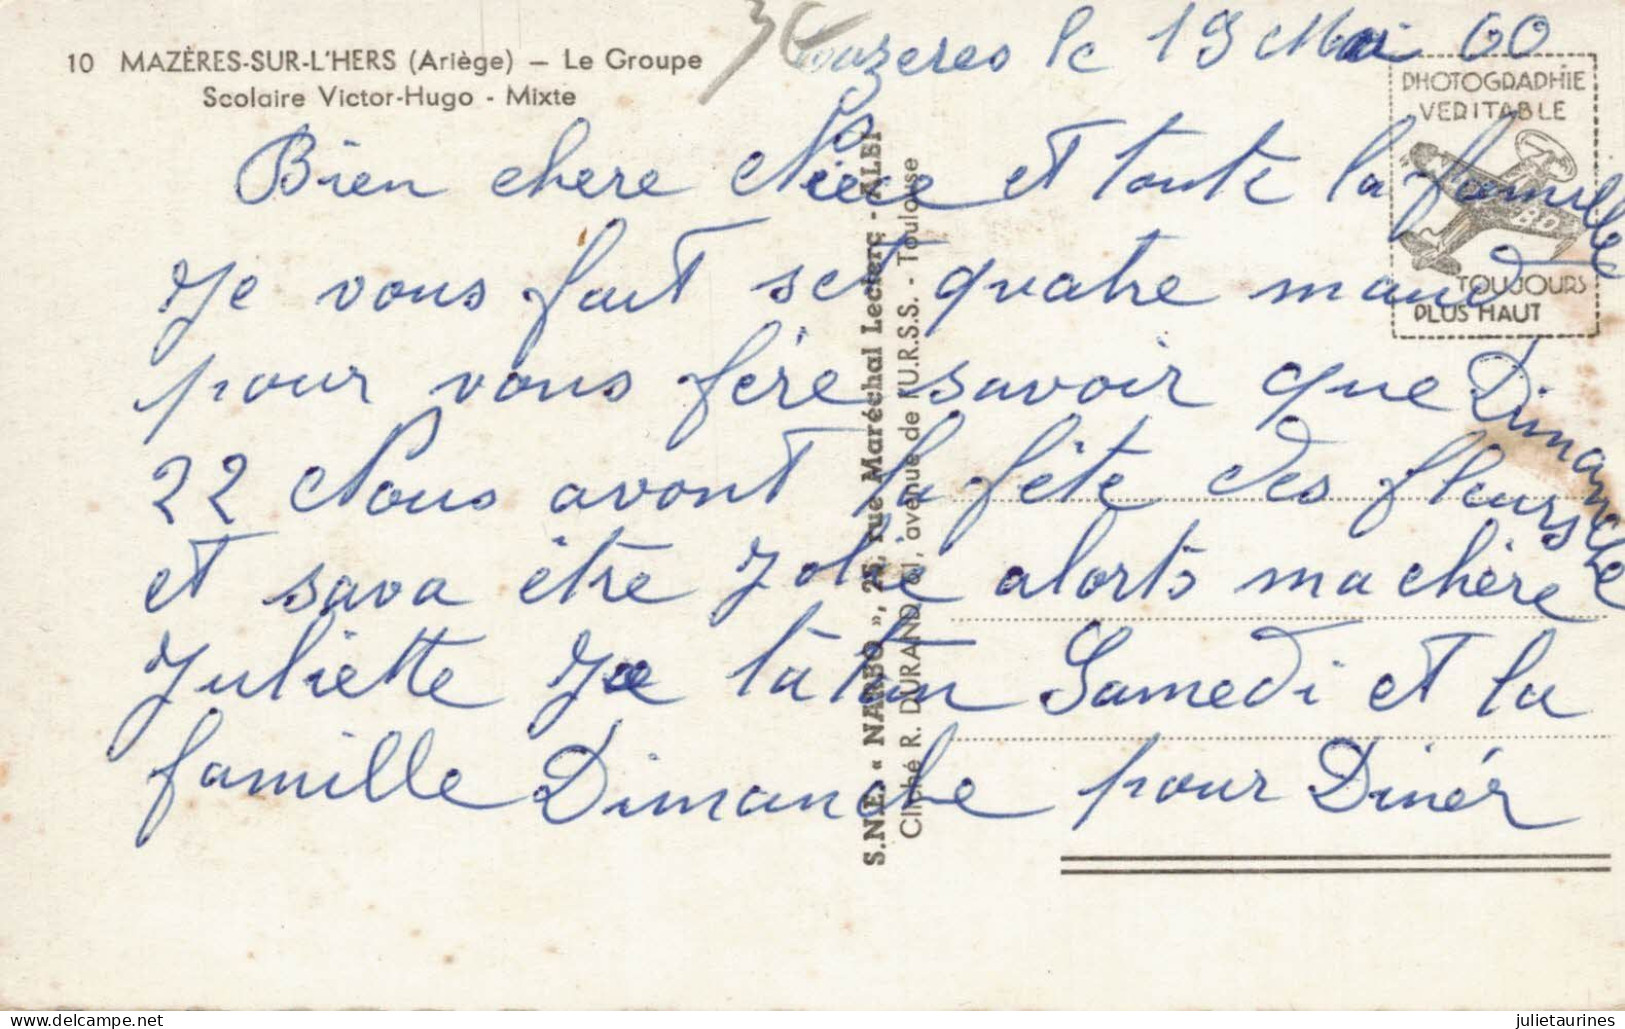 10 MAZÈRES-SUR-L'HERS (Ariège) — Le Groupe
Scolaire Victor-Hugo - Mixte
3€
Mazeres le 19 Mai 60
Bien chere Nièce et toute la famille
Je vous fait set quatre maux
pour vous fére savoir que Dimanche
22 Nous avont la fête des fleurs
et sava être Jolie alorts ma chère
Juliette Je tâtan Samedi et la
famille Dimanche pour Dinér
S.N.E. « NARBO », 25, rue Maréchal Leclerc - ALBI
Cliché R. DURAND, avenue de l'U.R.S.S. - Toulouse
PHOTOGRAPHIE
VERITABLE
TOUJOURS
PLUS HAUT
julietaurines